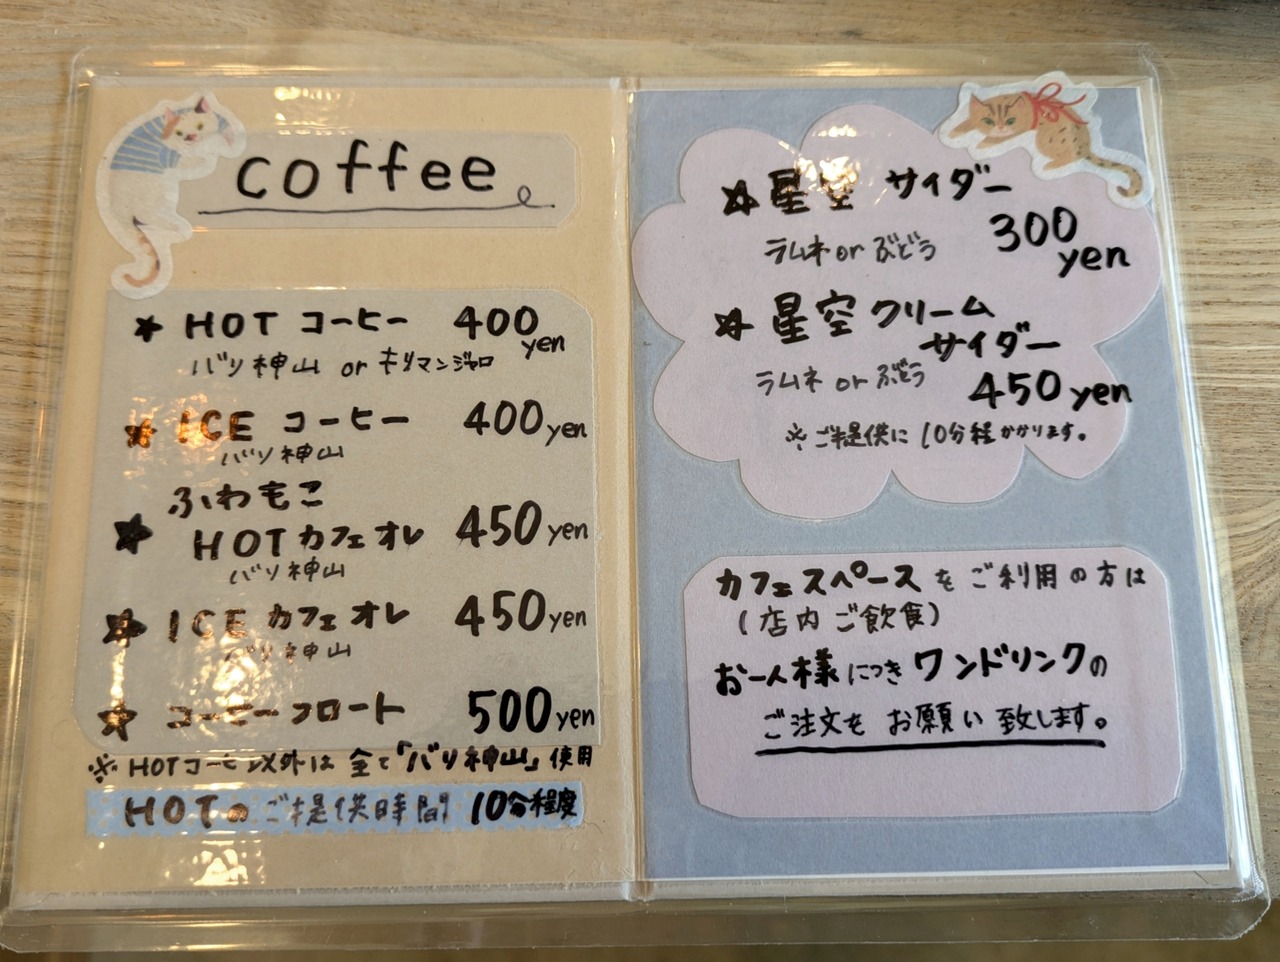 coffee
★ HOT コーヒー 400 yen
バリ神山 or キリマンジャロ
★ ICE コーヒー 400 yen
バリ神山
ふわもこ
★ HOT カフェオレ 450 yen
バリ神山
★ ICE カフェオレ 450 yen
バリ神山
★ コーヒーフロート 500 yen
※ HOTコーヒー以外は全て「バリ神山」使用
HOTのご提供時間 10分程度
★ 星空 サイダー
ラムネ or ぶどう 300 yen
★ 星空 クリーム
サイダー
ラムネ or ぶどう 450 yen
※ ご提供に 10分程かかります。
カフェスペースをご利用の方は
(店内ご飲食)
お一人様につきワンドリンクの
ご注文をお願い致します。